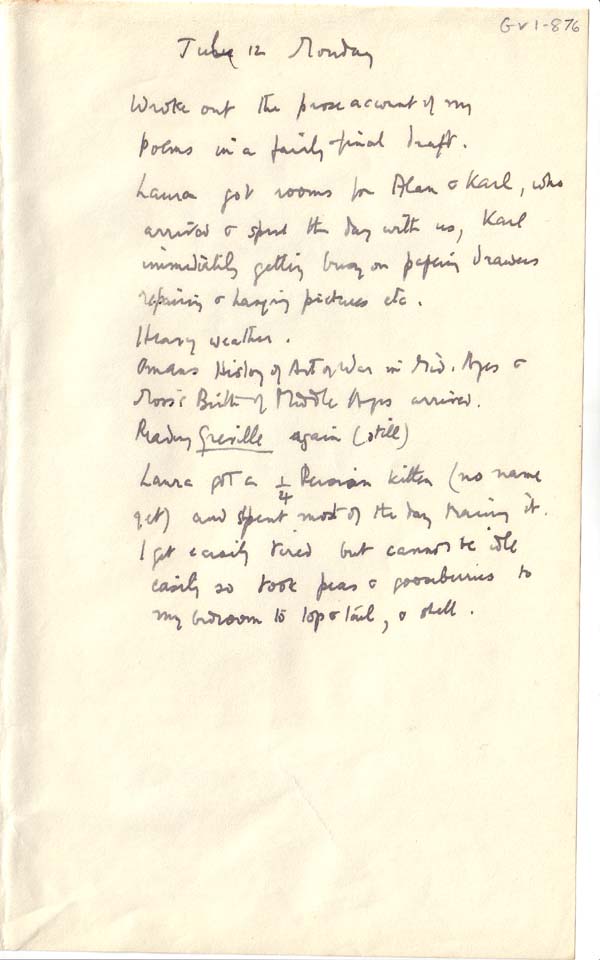 Gv1-876
July 12 Monday
Wrote out the prose account of my
poems in a fairly-final draft.
Laura got rooms for Alan & Karl, who
arrived & spent the day with us, Karl
immediately getting busy on papering drawers
repairing & hanging pictures etc.
Heavy weather.
Omans History of Art of War in Mid. Ages &
Moss's Birth of Middle Ages arrived.
Reading Greville again (still)
Laura got a 1/4 Persian kitten (no name
yet) and spent most of the day training it.
I get easily tired but cannot be idle
easily so took peas & gooseberries to
my bedroom to top & tail, & shell.